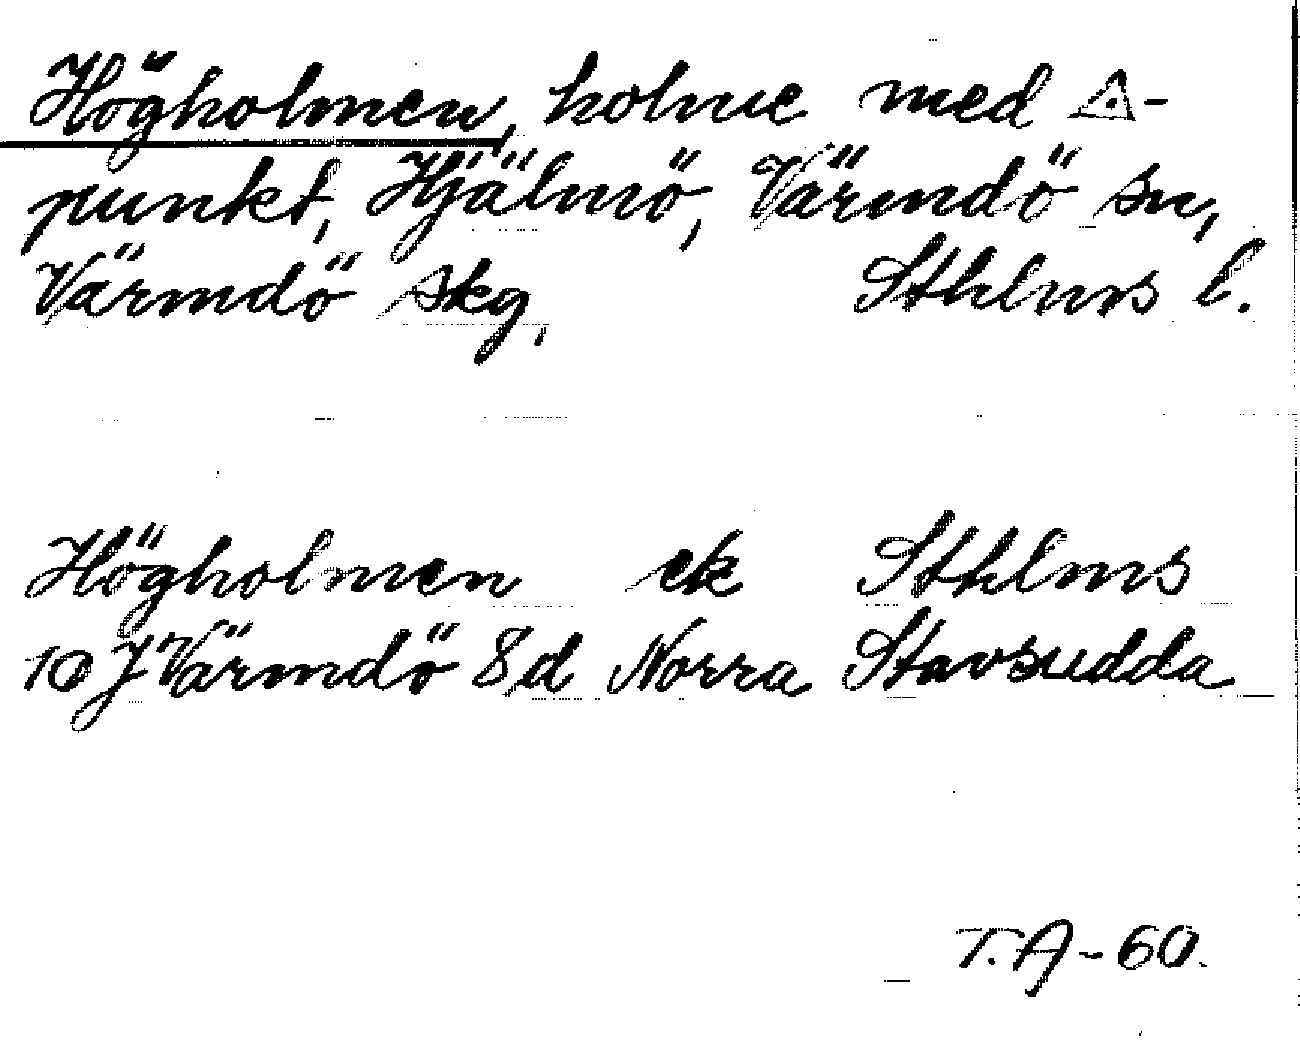 Högholmen, holme med △-
punkt, Hjälmö, Värmdö sn,
Värmdö skg, Sthlms l.
Högholmen ek Sthlms
10 J Värmdö 8d Norra Stavsudda
T.A-60.